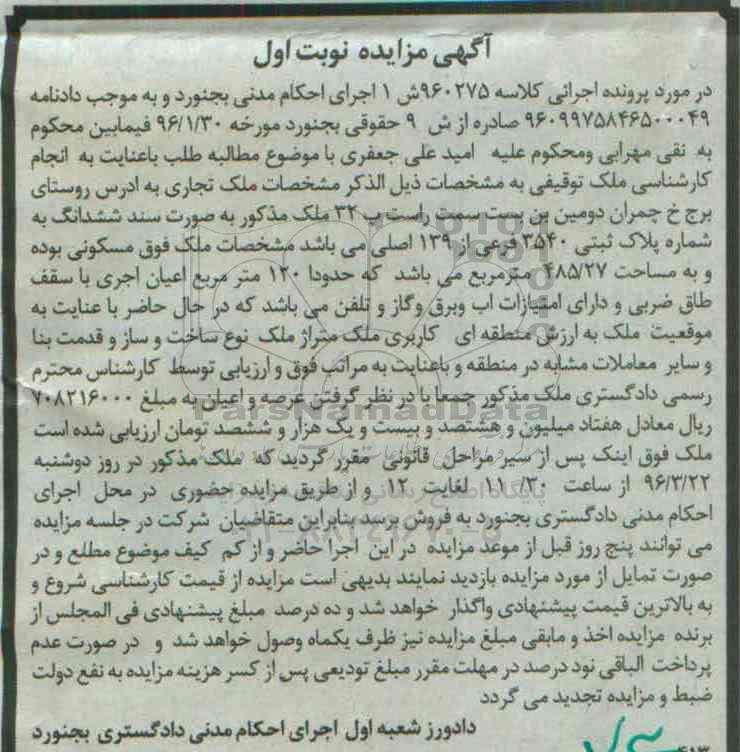 آگهی مزایده نوبت اول
در مورد پرونده اجرائی کلاسه ۹۶۰۲۷۵ش ۱ اجرای احکام مدنی بجنورد و به موجب دادنامه
۹۶۰۹۹۷۵۸۴۶۵۰۰۰۴۹ صادره از ش ۹ حقوقی بجنورد مورخه ۹۶/۱/۳۰ فیمابین محکوم
به نقی مهرابی ومحکوم علیه امید علی جعفری با موضوع مطالبه طلب باعنایت به انجام
کارشناسی ملک توقیفی به مشخصات ذیل الذکر مشخصات ملک تجاری به ادرس روستای
برج خ چمران دومین بن بست سمت راست پ ۳۲ ملک مذکور به صورت سند ششدانگ به
شماره پلاک ثبتی ۳۵۴۰ فرعی از ۱۳۹ اصلی می باشد مشخصات ملک فوق مسکونی بوده
و به مساحت ۴۸۵/۲۷ مترمربع می باشد که حدودا ۱۲۰ متر مربع اعیان اجری با سقف
طاق ضربی و دارای امتیازات اب وبرق وگاز و تلفن می باشد که در حال حاضر با عنایت به
موقعیت ملک به ارزش منطقه ای کاربری ملک متراژ ملک نوع ساخت و ساز و قدمت بنا
و سایر معاملات مشابه در منطقه و باعنایت به مراتب فوق و ارزیابی توسط کارشناس محترم
رسمی دادگستری ملک مذکور جمعا با در نظر گرفتن عرصه و اعیان به مبلغ ۷۰۸۲۱۶۰۰۰
ریال معادل هفتاد میلیون و هشتصد و بیست و یک هزار و ششصد تومان ارزیابی شده است
ملک فوق اینک پس از سیر مراحل قانونی مقرر گردید که ملک مذکور در روز دوشنبه
۹۶/۳/۲۲ از ساعت ۱۱/۳۰ لغایت ۱۲ و از طریق مزایده حضوری در محل اجرای
احکام مدنی دادگستری بجنورد به فروش برسد بنابراین متقاضیان شرکت در جلسه مزایده
می توانند پنج روز قبل از موعد مزایده در این اجرا حاضر و از کم کیف موضوع مطلع و در
صورت تمایل از مورد مزایده بازدید نمایند بدیهی است مزایده از قیمت کارشناسی شروع و
به بالاترین قیمت پیشنهادی واگذار خواهد شد و ده درصد مبلغ پیشنهادی فی المجلس از
برنده مزایده اخذ و مابقی مبلغ مزایده نیز ظرف یکماه وصول خواهد شد و در صورت عدم
پرداخت الباقی نود درصد در مهلت مقرر مبلغ تودیعی پس از کسر هزینه مزایده به نفع دولت
ضبط و مزایده تجدید می گردد
دادورز شعبه اول اجرای احکام مدنی دادگستری بجنورد
ParsNamadData